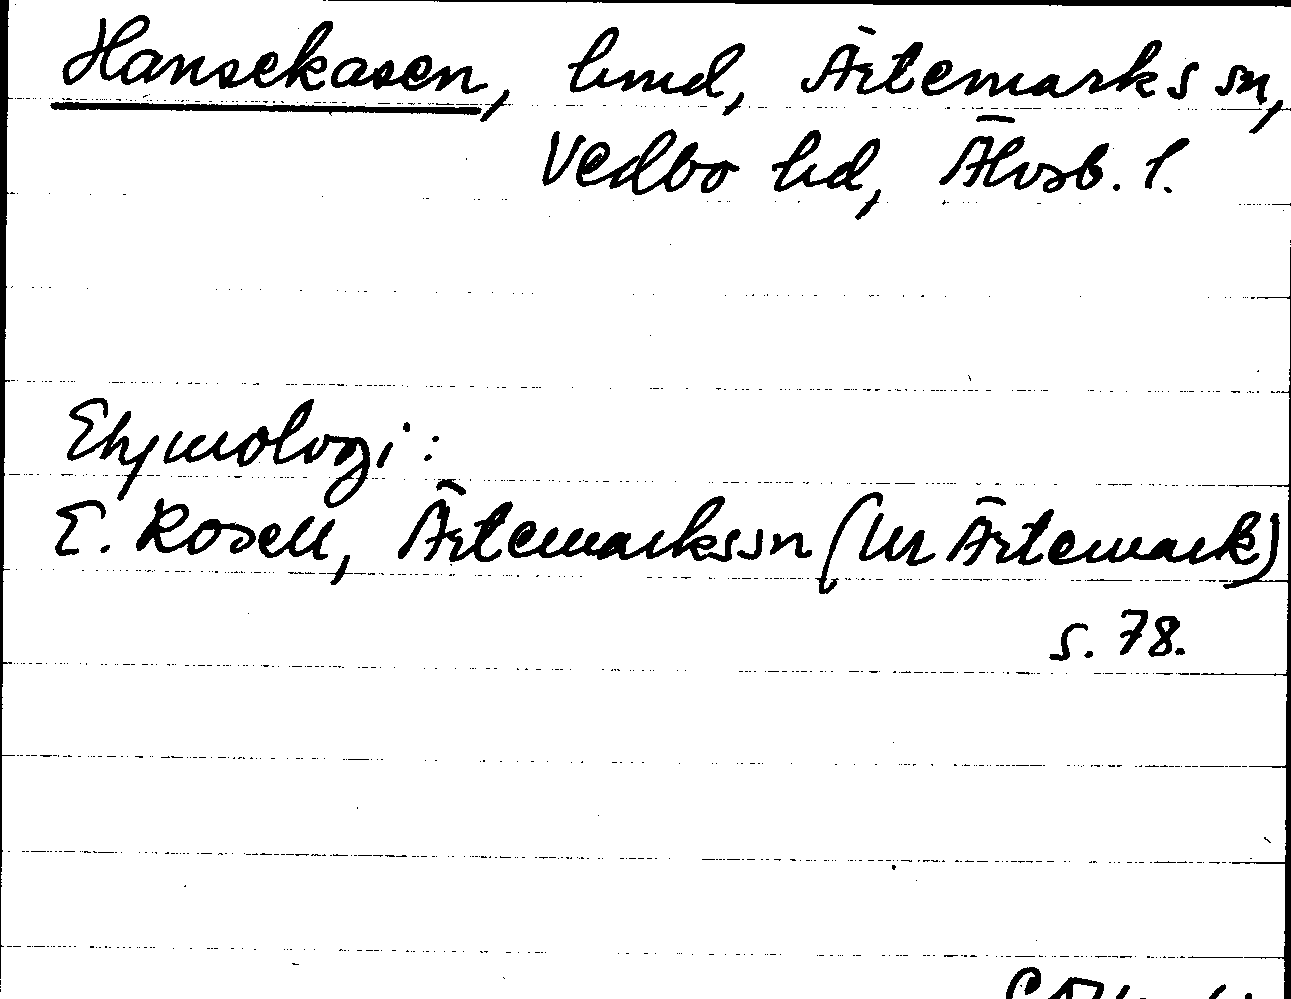 Hansekasen, lmd, Ärtemarks sn,
Vedbo hd, Älvsb. l.
Etymologi:
E. Rosell, Ärtemarkssn (ur Ärtemark)
s. 78.